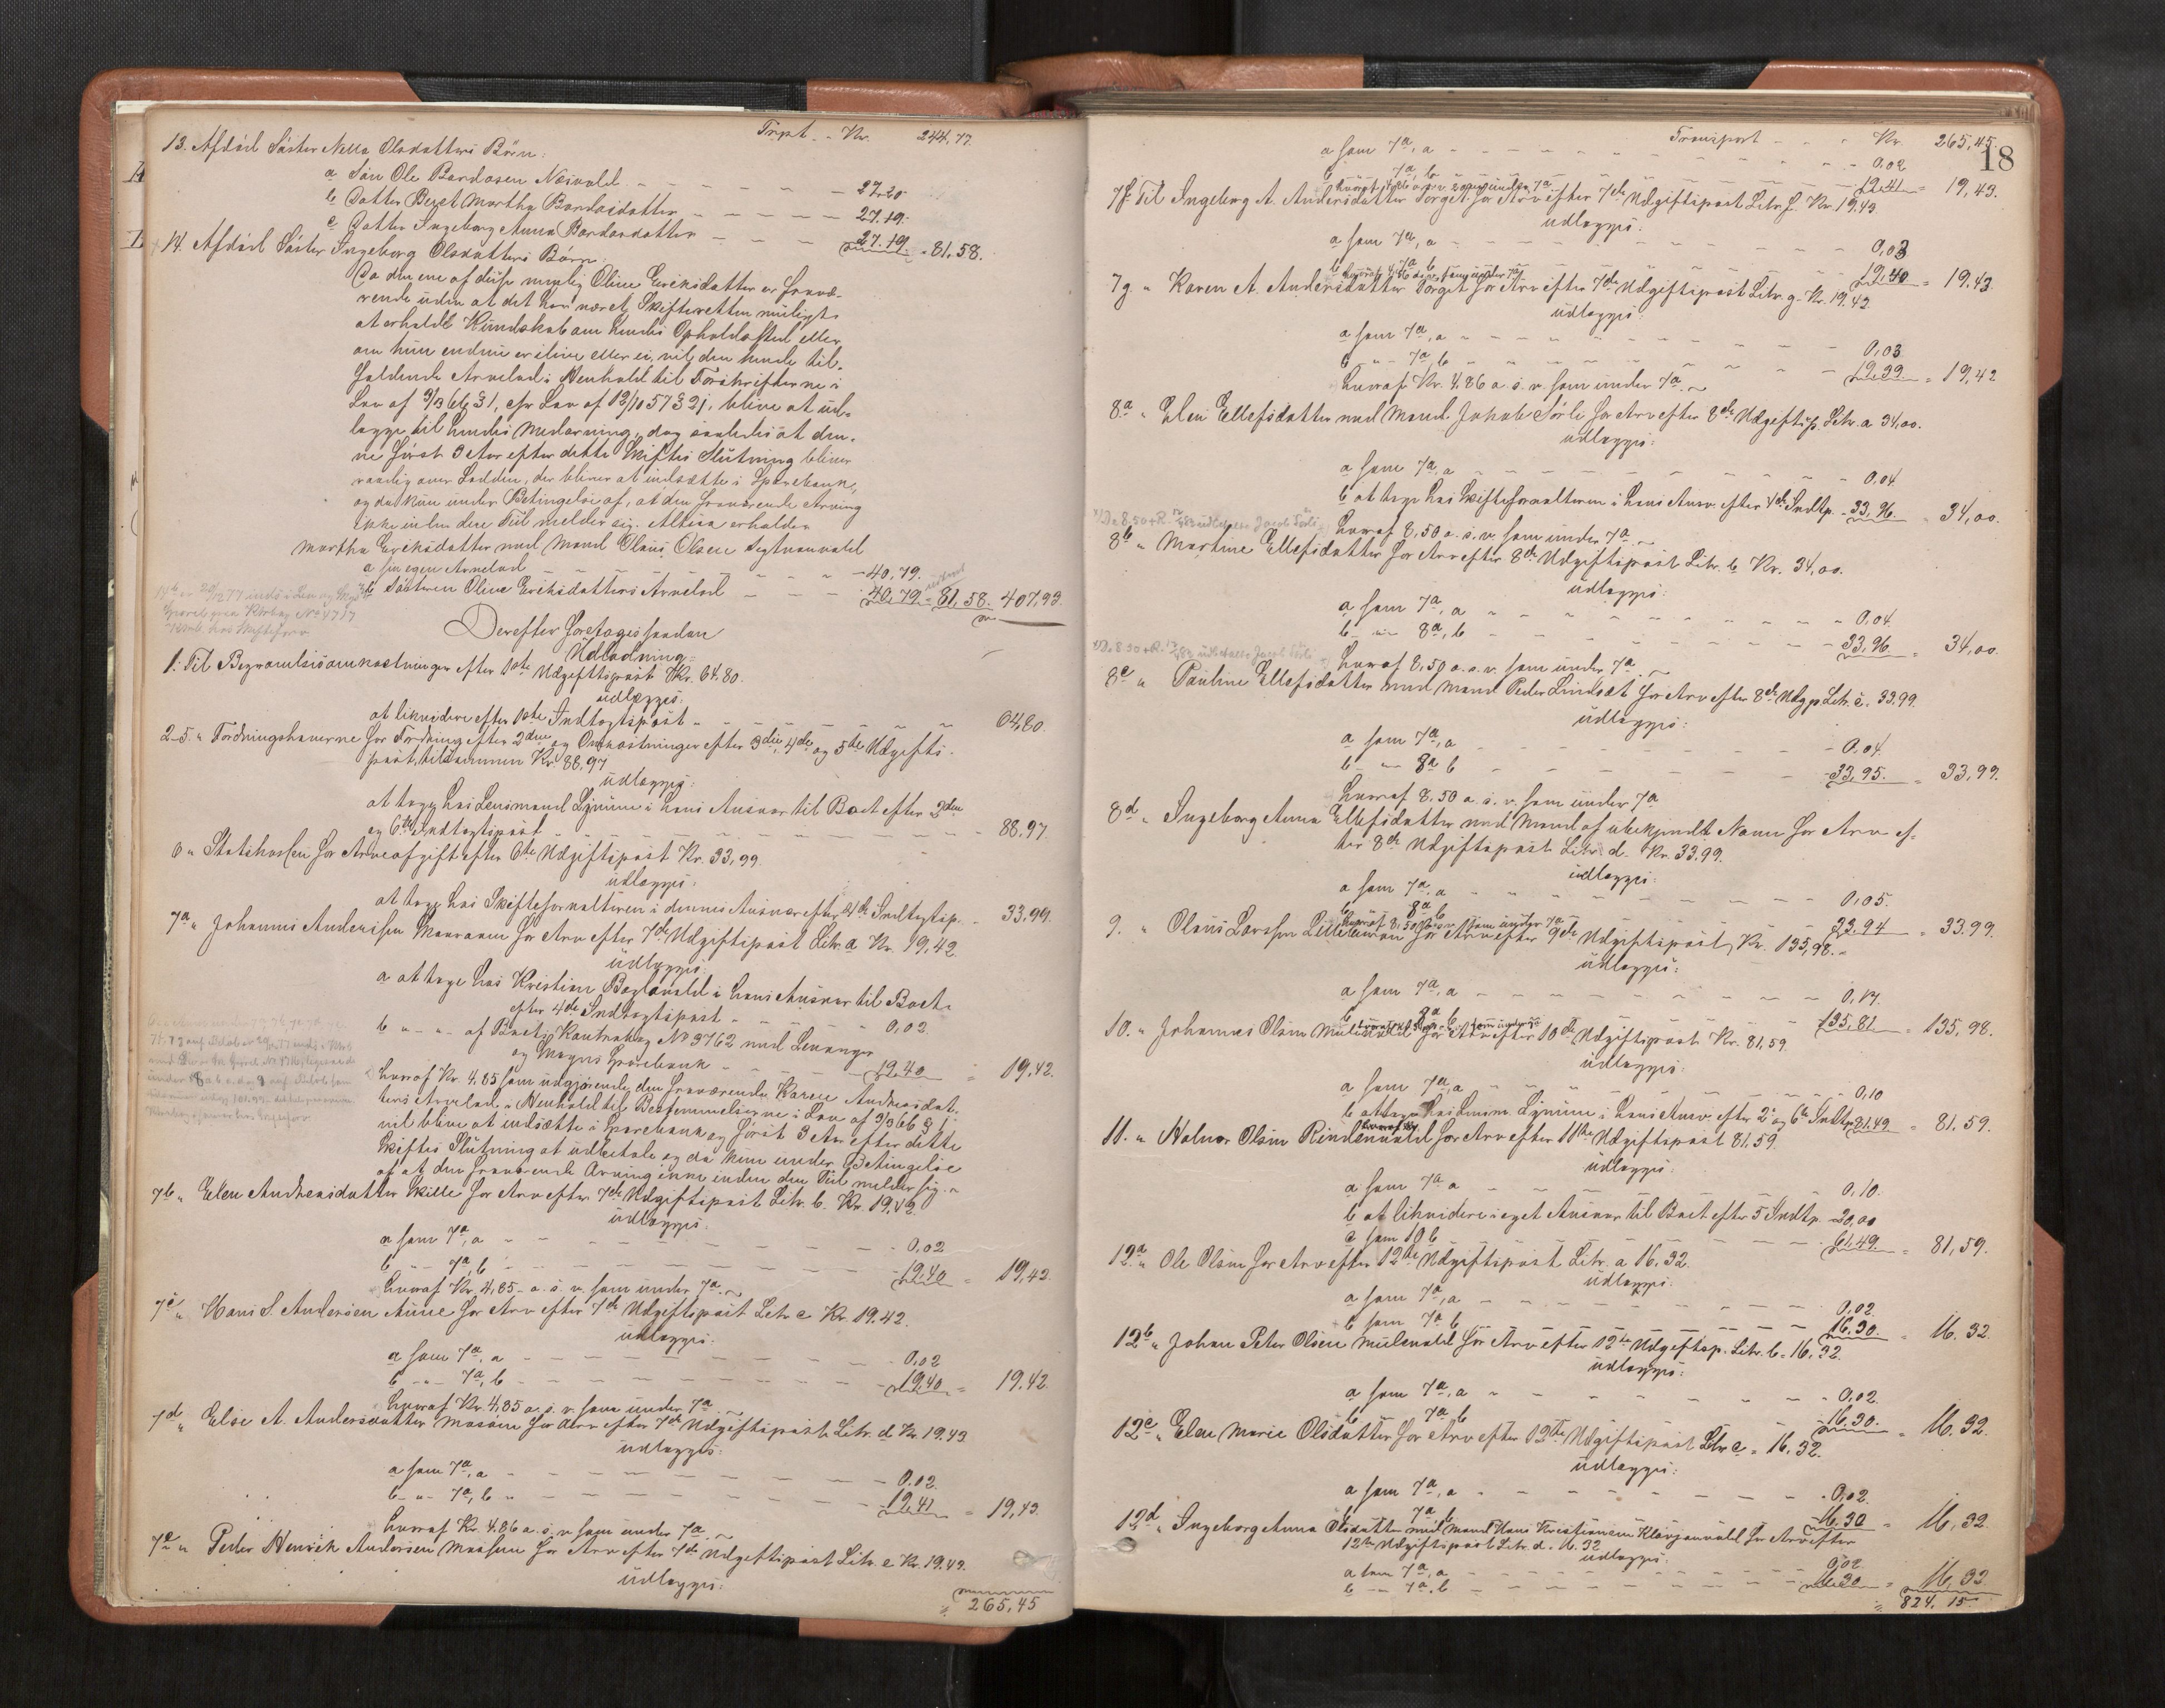 Trpt. - Kr. 244,77.
13. Afdød Søster Nella Olsdatters Børn:
a Søn Ole Bardosen Næsvold - - - 27.20
b Datter Bergt Martha Bardosdatter - - - 27.19.
c Datter Ingeborg Anna Bardosdatter - - - 27.19 = 81,58.
14. Afdød Søster Ingeborg Olsdatters Børn:
Da den ene af disse nemlig Oline Erichsdatter er fravæ-
rende uden at det har været Skifteretten muligt
at erholde Kundskab om hendes Opholdssted eller
om hun endnu er ilive eller ei, vil den hende til-
faldende Arvelod i Henhold til Forskrifterne i
Lov af 3/3 66 § 1, cfr Lov af 12/10 57 § 21, blive at ud-
lægge til hendes Medarving, dog saaledes at den-
ne først 3 Aar efter dette Skiftes Slutning bliver
raadig over Lodden, der bliver at indsætte i Sparebank,
og det kun under Betingelse af, at den fraværende Arving
ikke inden den Tid melder sig. Altsaa erholder
Martha Erichsdatter med Mand Olaus Olsen
a sin egen Arvelod - - - 40,79.
b Søsteren Oline Erichsdatters Arvelod - - - 40,79 = 81,58. 407,93.
Derefter foretoges saadan
Udlodning:
1. Til Begravelsesomkostninger efter 1ste Udgiftspost Kr. 64.80.
udlægges:
at likvidere efter 1ste Indtægtspost - - - 64,80.
2-5. " Fordringshaverne for Fordring efter 2den og Omkostninger efter 3die, 4de og 5te Udgifts-
post, tilsammen Kr. 88,97
udlægges:
at tage hos Lensmand Lynum i hans Ansvar til Boet efter 2den
og 6te Indtægtspost - - - 88.97.
6 " Statskassen for Arveafgift efter 6te Udgiftspost Kr. 33,99.
udlægges:
at tage hos Skifteforvalteren i dennes Ansvar efter 4de Indtægtsp. - 33,99.
7a " Johannes Andersen for Arv efter 7de Udgiftspost Litr. a Kr. 19,42
udlægges:
a at tage hos Kristian Baglovald i hans Ansvar til Boet
efter 4de Indtægtspost - - - 0,02.
b " - " - af Boets Kontrabog No 3762 med Levanger
og Skogns Sparebank - - - 19.40 = 19,42.
hvoraf Kr. 4.85 som udgjørende den fraværende Karen Andersdat-
ters Arvelod i Henhold til Bestemmelserne i Lov af 3/3 66 § 1
vil blive at indsætte i Sparebank og først 3 Aar efter dette
Skiftes Slutning at udbetale og da kun under Betingelse
af at den fraværende Arving ikke inden den Tid melder sig.
7b " Elen Andersdatter Skille for Arv efter 7de Udgiftspost Litr. b. Kr. 19.42
udlægges:
a som 7a, a - - - 0,02
b - " - 7a, b - - - 19.40 = 19,42.
hvoraf Kr. 4,85 - o. s. v. som under 7a.
7c " Hans S. Andersen for Arv efter 7de Udgiftspost Litr. c Kr. 19.42.
udlægges:
a som 7a, a - - - 0,02
b - " - 7a, b - - - 19.40 = 19.42.
hvoraf Kr. 4.85 o. s. v. som under 7a
7d " Elise A. Andersdatter for Arv efter 7de Udgiftspost Litr. d Kr. 19.43
udlægges:
a som 7a, a - - - 0.02.
b - " - 7a, b - - - 19.41 = 19,43.
hvoraf Kr. 4.86 o. s. v. som under 7a.
7e " Peder Henrik Andersen for Arv efter 7de Udgiftspost Litr. e Kr. 19.43.
udlægges:
265,45
18
Transport - - - Kr. 265,45.
a som 7a, a - - - 0.02
b 7a, b - - - 19.41 = 19,43.
7f. Til Ingeborg A. Andersdatter for Arv efter 7de Udgiftspost Litr. f. Kr. 19.43
udlægges:
a som 7a, a - - - 0,03
b 7a, b - - - 19.40 = 19,43.
7g " Karen A. Andersdatter for Arv efter 7de Udgiftspost Litr. g. Kr. 19.42
udlægges:
a som 7a, a - - - 0,03
b - " - 7a, b - - - 19.39 = 19,42
hvoraf Kr. 4.86 o. s. v. som under 7a.
8a " Elen Ellefsdatter med Mand Jakob for Arv efter 8de Udgiftsp. Litr. a 34,00.
udlægges:
a som 7a, a - - - 0.04
b at tage hos Skifteforvalteren i hans Ansv. efter 4de Indtp. - 33,96. = 34,00.
hvoraf 8,50 o. s. v. som under 7a.
8b " Martine Ellefsdatter for Arv efter 8de Udgiftspost Litr. b Kr. 34,00.
udlægges:
a som 7a, a - - - 0,04.
b - " - 8a, b - - - 33,96. = 34,00.
hvoraf 8,50 o. s. v. som under 7a.
8c " Pauline Ellefsdatter med Mand Peder Lindset for Arv efter 8de Udgp Litr. c. 33.99.
udlægges:
a som 7a, a - - - 0,04.
b - " - 8a b - - - 33,95. = 33,99.
hvoraf 8.50 o. s. v. som under 7a
8d " Ingeborg Anna Ellefsdatter med Mand af ubekjendt Navn for Arv ef-
ter 8de Udgiftspost Litr. d. Kr. 33.99.
udlægges:
a som 7a, a - - - 0,05.
b 8a b - - - 33.94 = 33.99.
9. " Olaus Larssen for Arv efter 9de Udgiftspost, Kr. 135,98.
udlægges:
a som 7a, a - - - 0,17.
b 8a b - - - 135,81 = 135,98.
10. " Johannes Olsen for Arv efter 10de Udgiftspost Kr. 81,59.
udlægges:
a som 7a, a - - - 0,10
b at tage hos Lensm. Lynum i hans Ansv. efter 2. og 6te Indtp 81.49 = 81,59.
11. " Halvor Olsen for Arv efter 11te Udgiftspost 81,59.
udlægges:
a som 7a a - - - 0,10.
b at likvidere i eget Ansvar til Boet efter 5 Indtp. - 20,00
c som 10 b - - - 61.49. = 81,59.
12a " Ole Olsen for Arv efter 12te Udgiftspost Litr. a 16.32.
udlægges:
a som 7a, a - - - 0,02.
b som 7a b - - - 16,30. = 16.32.
12b " Johan Peter Olsen for Arv efter 12te Udgiftsp. Litr. b - 16,32.
udlægges:
a som 7a, a - - - 0,02.
b 7a b - - - 16.30. = 16.32.
12c " Elen Marie Olsdatter for Arv efter 12te Udgiftspost Litr c - 16,32.
udlægges:
a som 7a, a - - - 0,02.
b 7a b - - - 16.30 = 16,32.
12d " Ingeborg Anna Olsdatter med Mand Hans Kristiansen for Arv efter
12te Udgiftspost Litr. d. 16.32
udlægges:
a som 7a, a - - - 0,02
b - " - 7a, b - - - 16.30 = 16,32
824,15